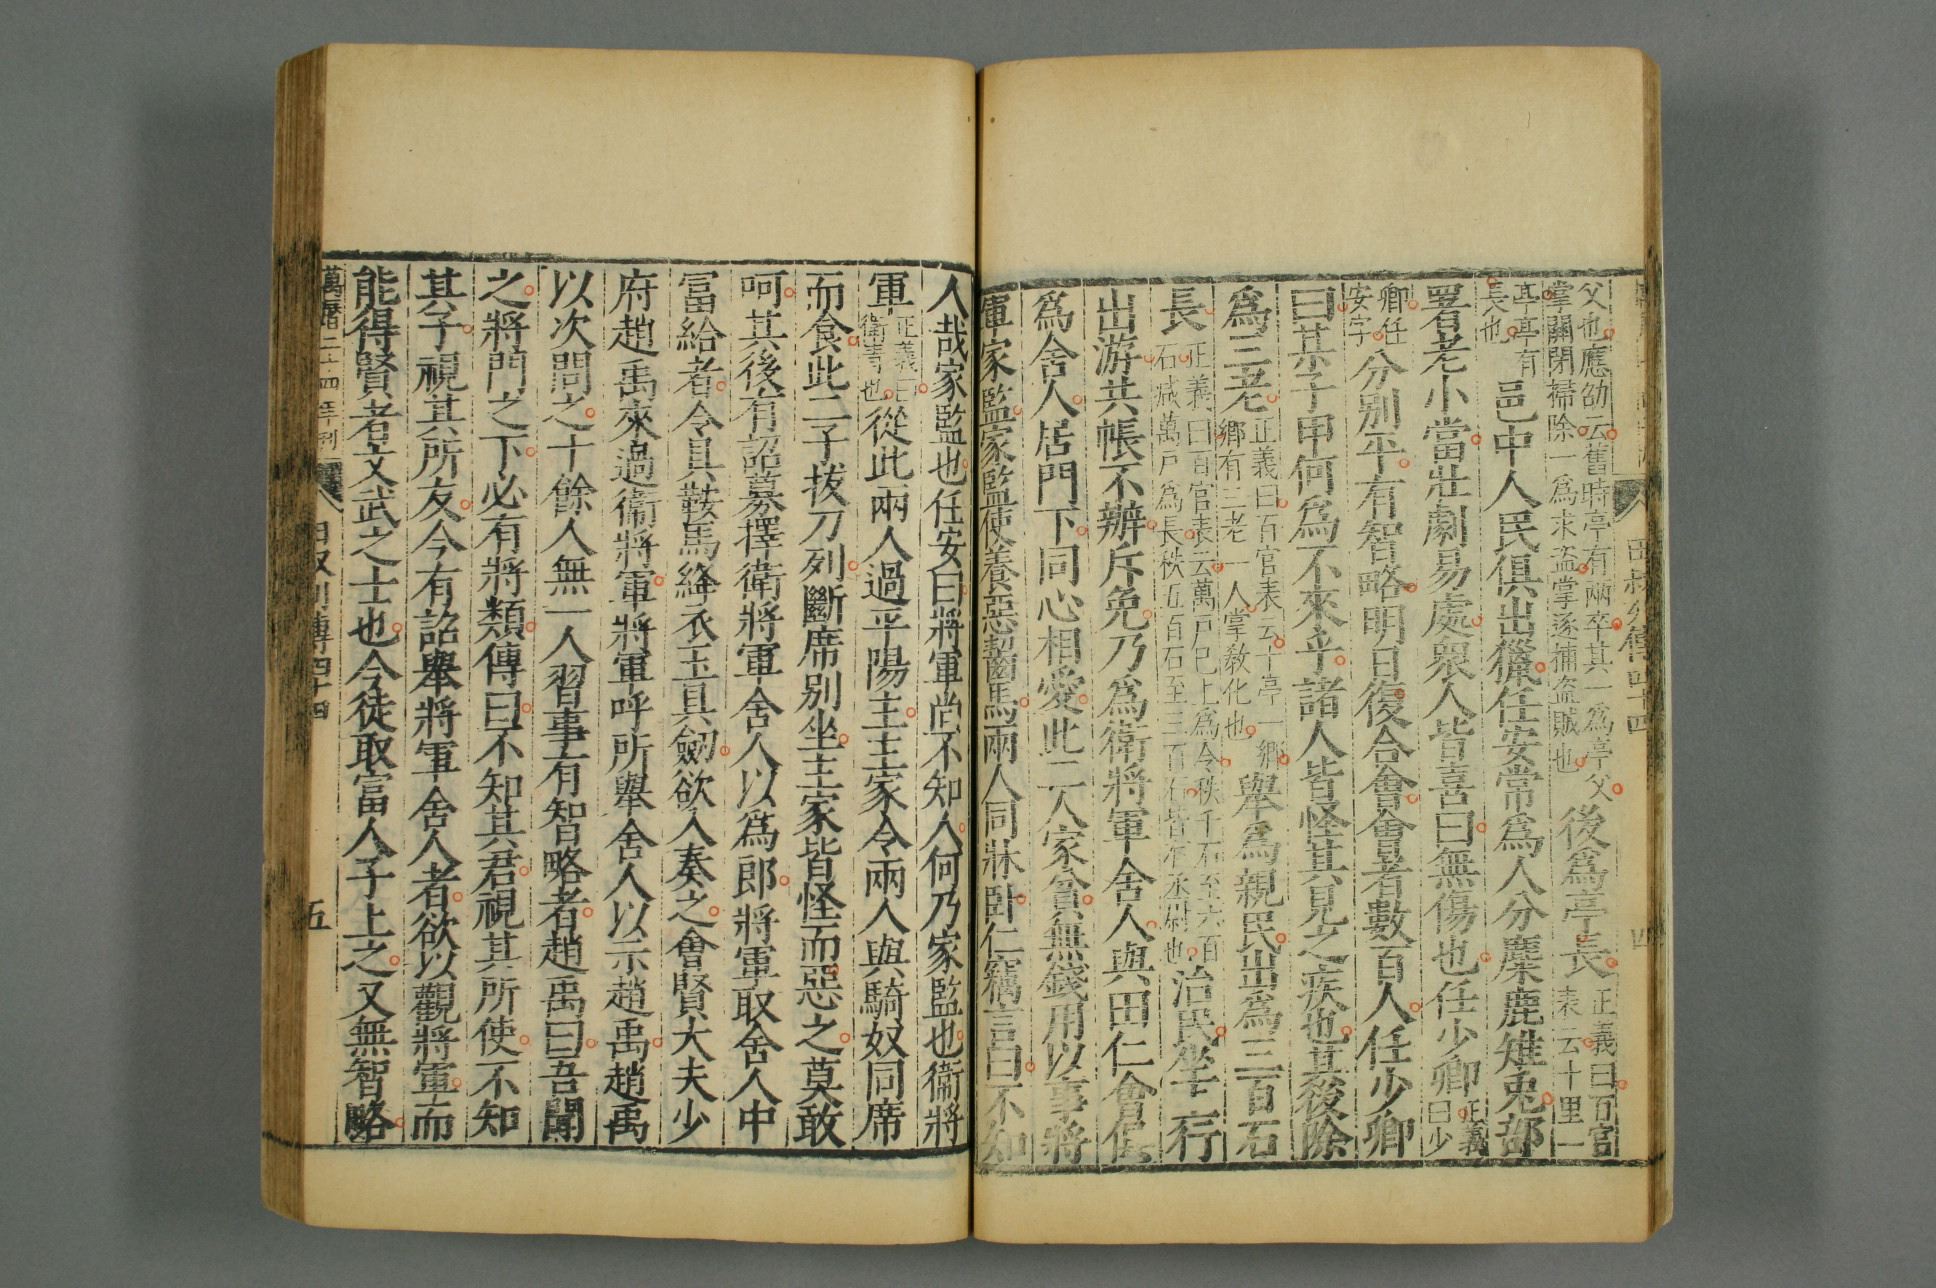 父也應劭云舊時亭有兩卒其一爲亭父
掌關閉掃除一爲求盜掌逐捕盜賊也
後爲亭長
正義曰百官
表云十里一
亭亭有
長也
邑中人民俱出獵任安常爲人分麋鹿雉兎部
署老小當壯劇易處衆人皆喜曰無傷也任少卿
正義
曰少
卿任
安字
分別平有智略明日復合會會者數百人任少卿
曰某子甲何爲不來乎諸人皆怪其見之疾也其後除
爲三老
正義曰百官表云十亭一鄉
鄉有三老一人掌教化也
舉爲親民出爲三百石
長
正義曰百官表云萬戸已上爲令秩千石至六百
石减萬戸爲長秩五百石至三百石皆有丞尉也
治民坐上行
出游共帳不辨斥免乃爲衛將軍舍人與田仁會俱
爲舍人居門下同心相愛此二人家貧無錢用以事將
軍家監家監使養惡齧馬兩人同牀卧仁竊言曰不知
人哉家監也任安曰將軍尚不知人何乃家監也衞將
軍
正義曰
衞靑也
從此兩人過平陽主主家令兩人與騎奴同席
而食此二子拔刀列斷席別坐主家皆怪而惡之莫敢
呵其後有詔募擇衛將軍舍人以爲郎將軍取舍人中
富給者令具鞍馬絳衣玉具劒欲入奏之會賢大夫少
府趙禹來過衞將軍將軍呼所舉舍人以示趙禹趙禹
以次問之十餘人無一人習事有智略者趙禹曰吾聞
之將門之下必有將類傳曰不知其君視其所使不知
其子視其所友今有詔舉將軍舍人者欲以觀將軍而
能得賢者文武之士也今徒取富人子上之又無智略
萬曆二十四年刊
田叔列傳四十四
五